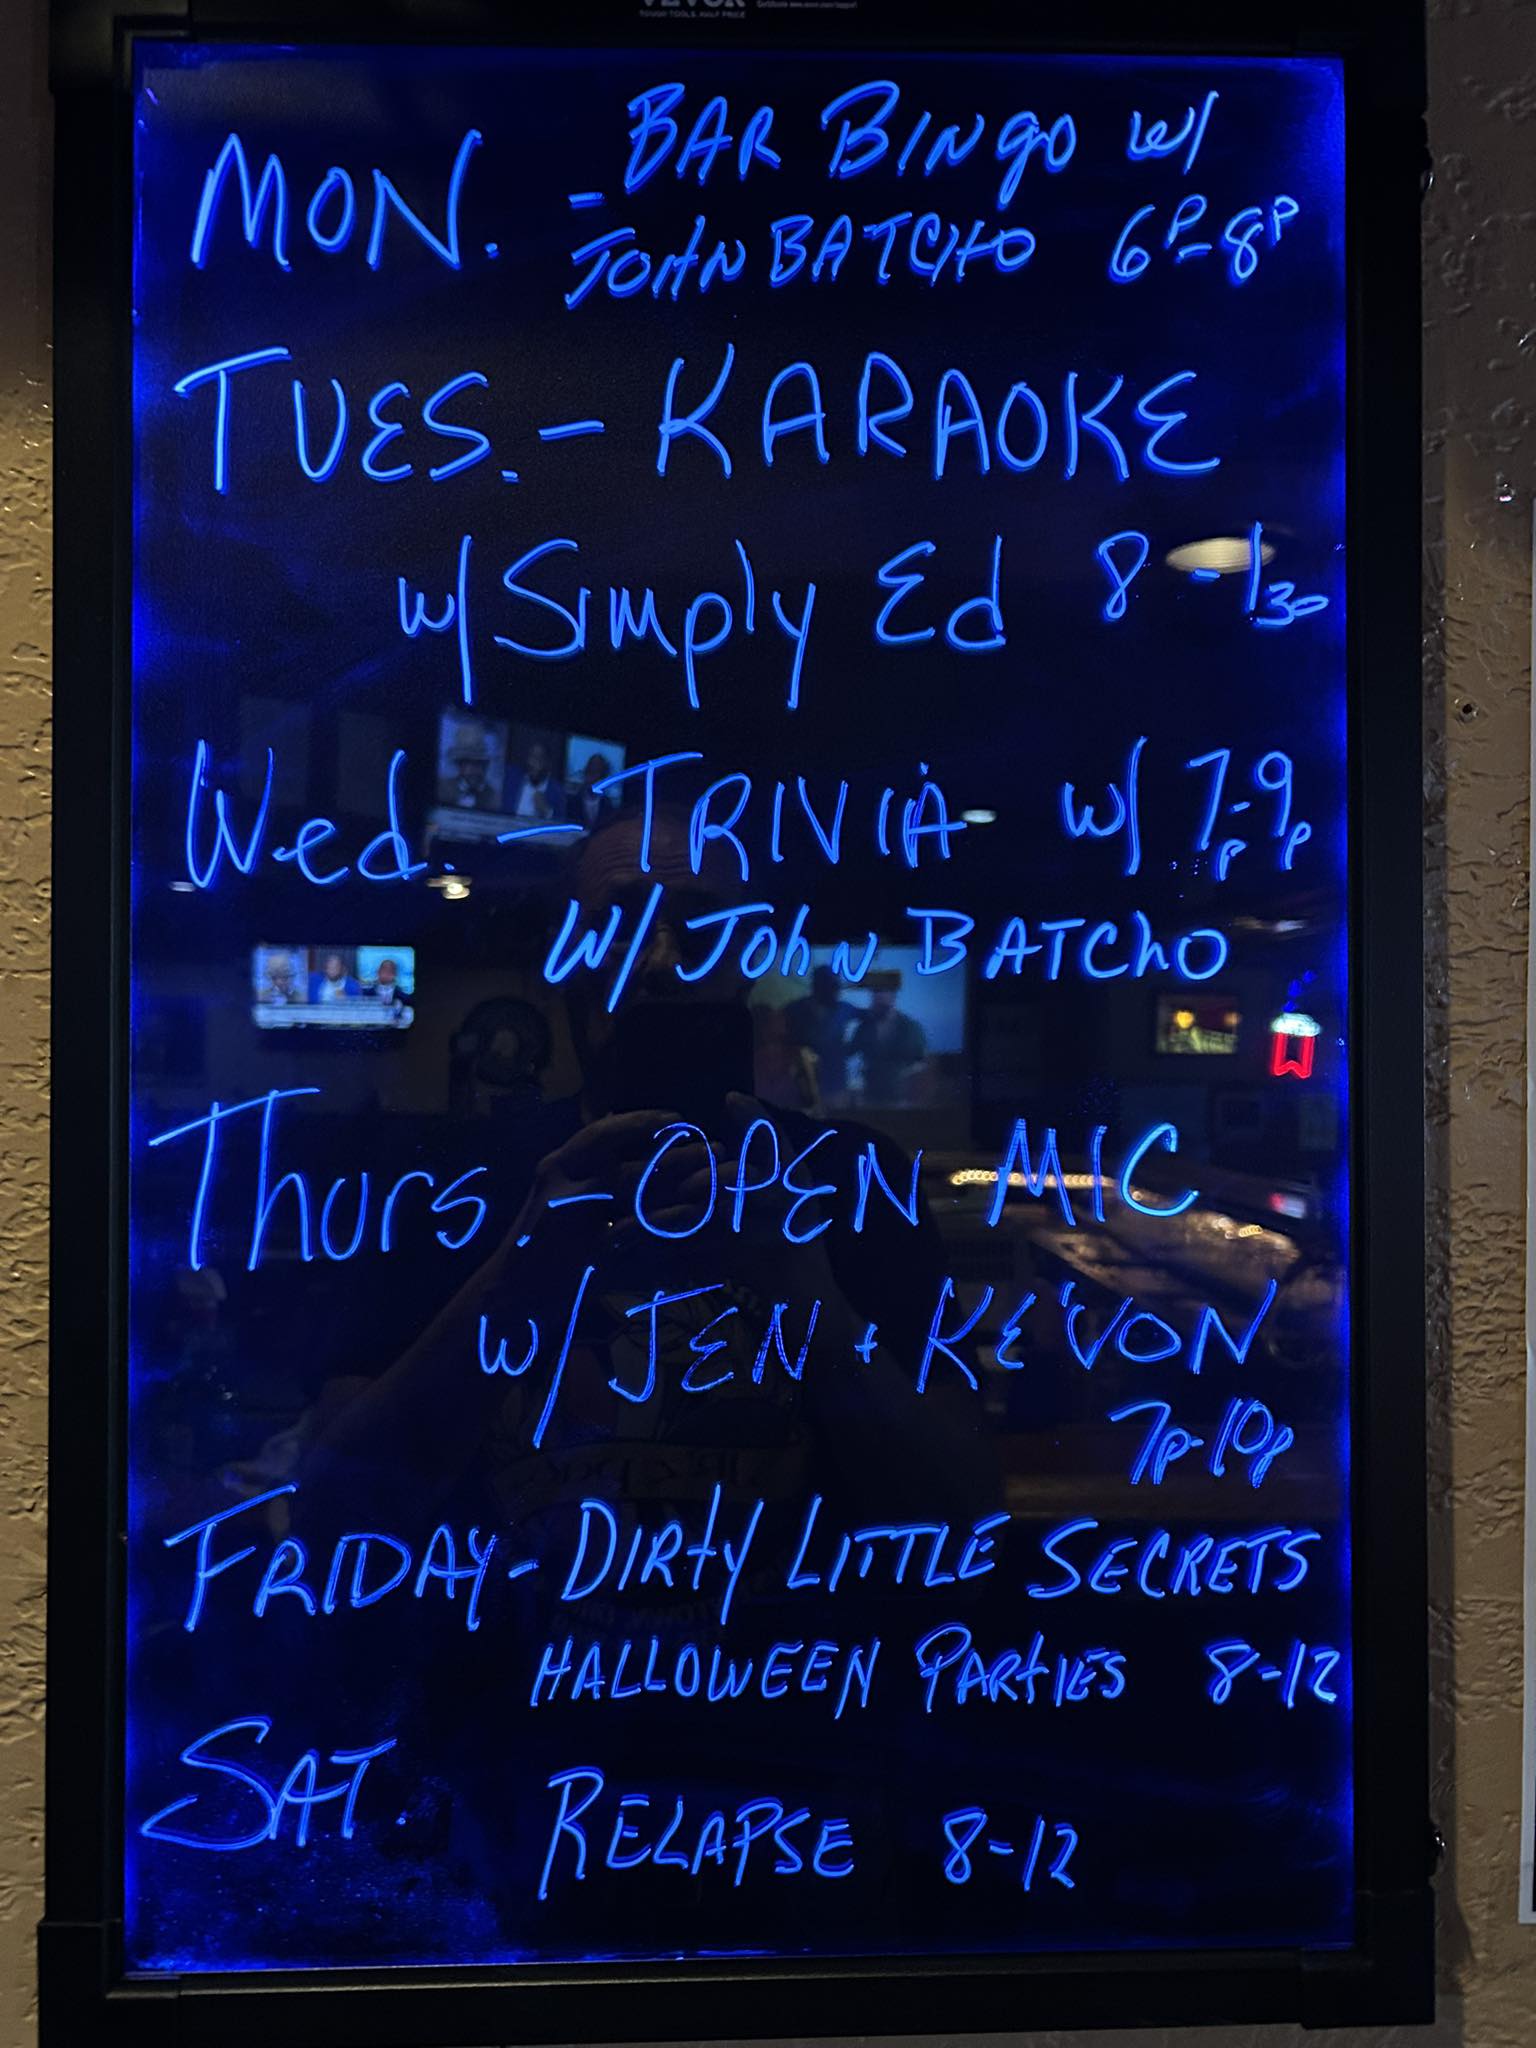 VEVOR
TOUGH TOOLS, HALF PRICE
MON. - BAR BINGO w/
JOHN BATCHO 6P-8P
TUES. - KARAOKE
w/ SIMPLY Ed 8 - 1/30
Wed. - TRIVIA w/ 7p-9p
W/ JOHN BATCHO
Thurs. - OPEN MIC
w/ JEN + KE'VON
7p-10p
FRIDAY - DIRTY LITTLE SECRETS
HALLOWEEN PARTIES 8-12
SAT. RELAPSE 8-12